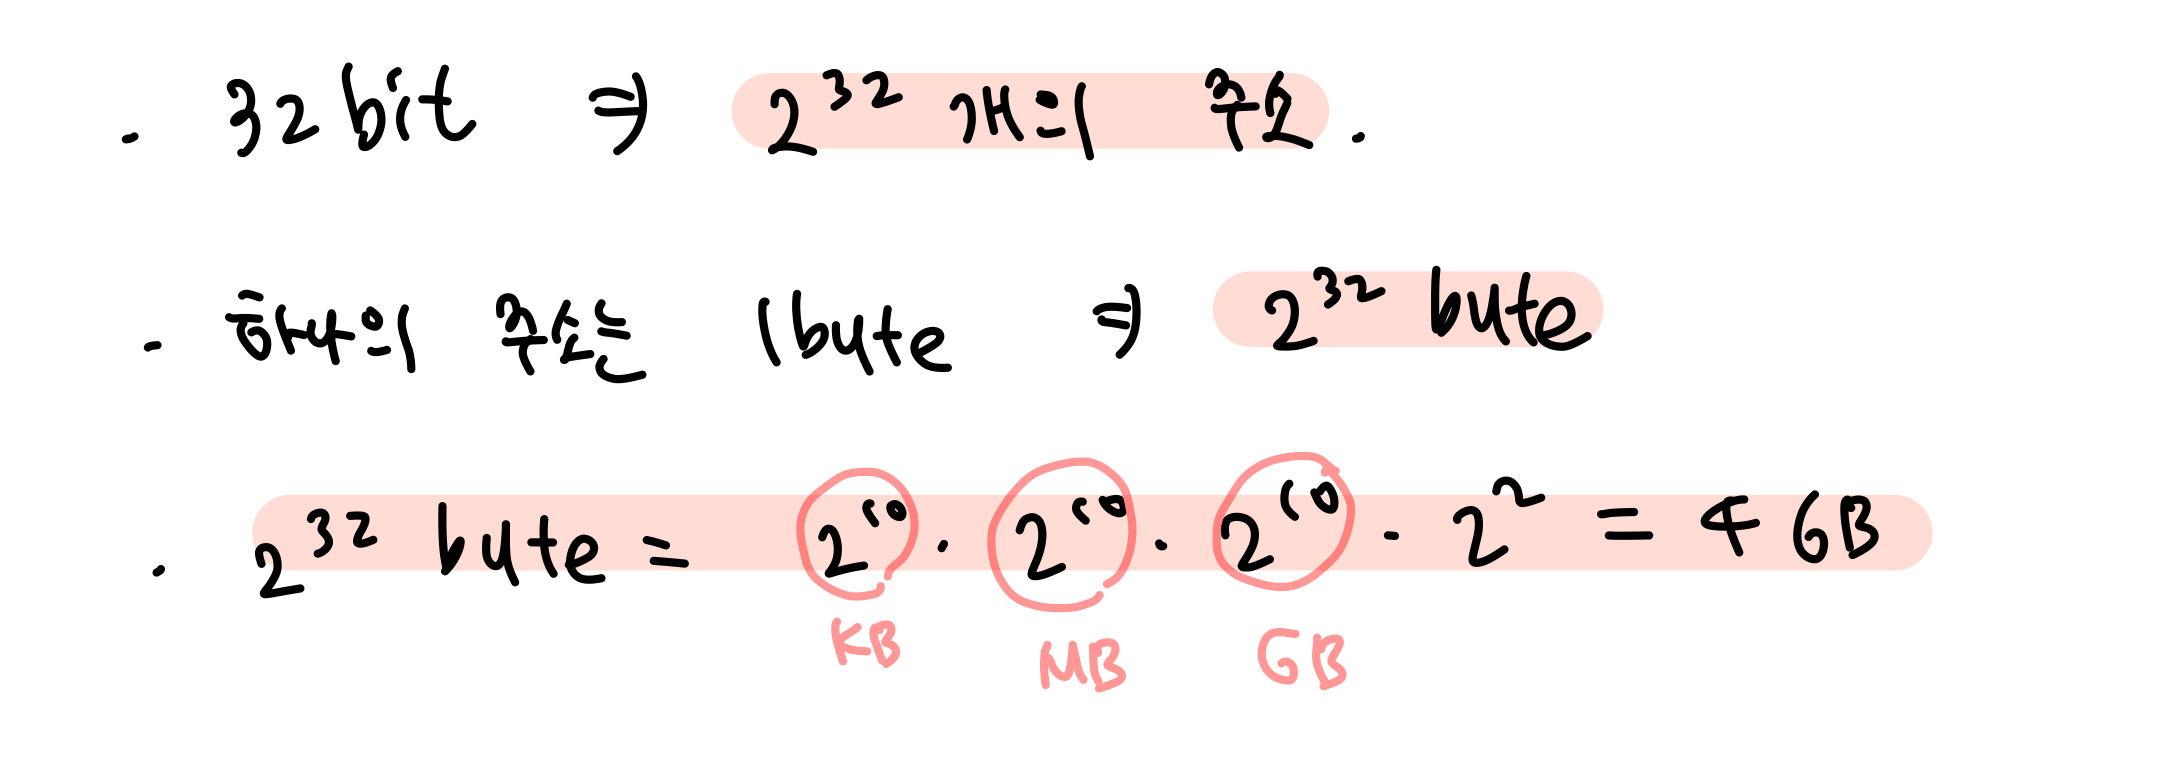 · 32 bit ⇒ 2³² 개의 주소.
· 하나의 주소는 1byte ⇒ 2³² byte
· 2³² byte = 2¹⁰ · 2¹⁰ · 2¹⁰ · 2² = 4 GB
KB MB GB